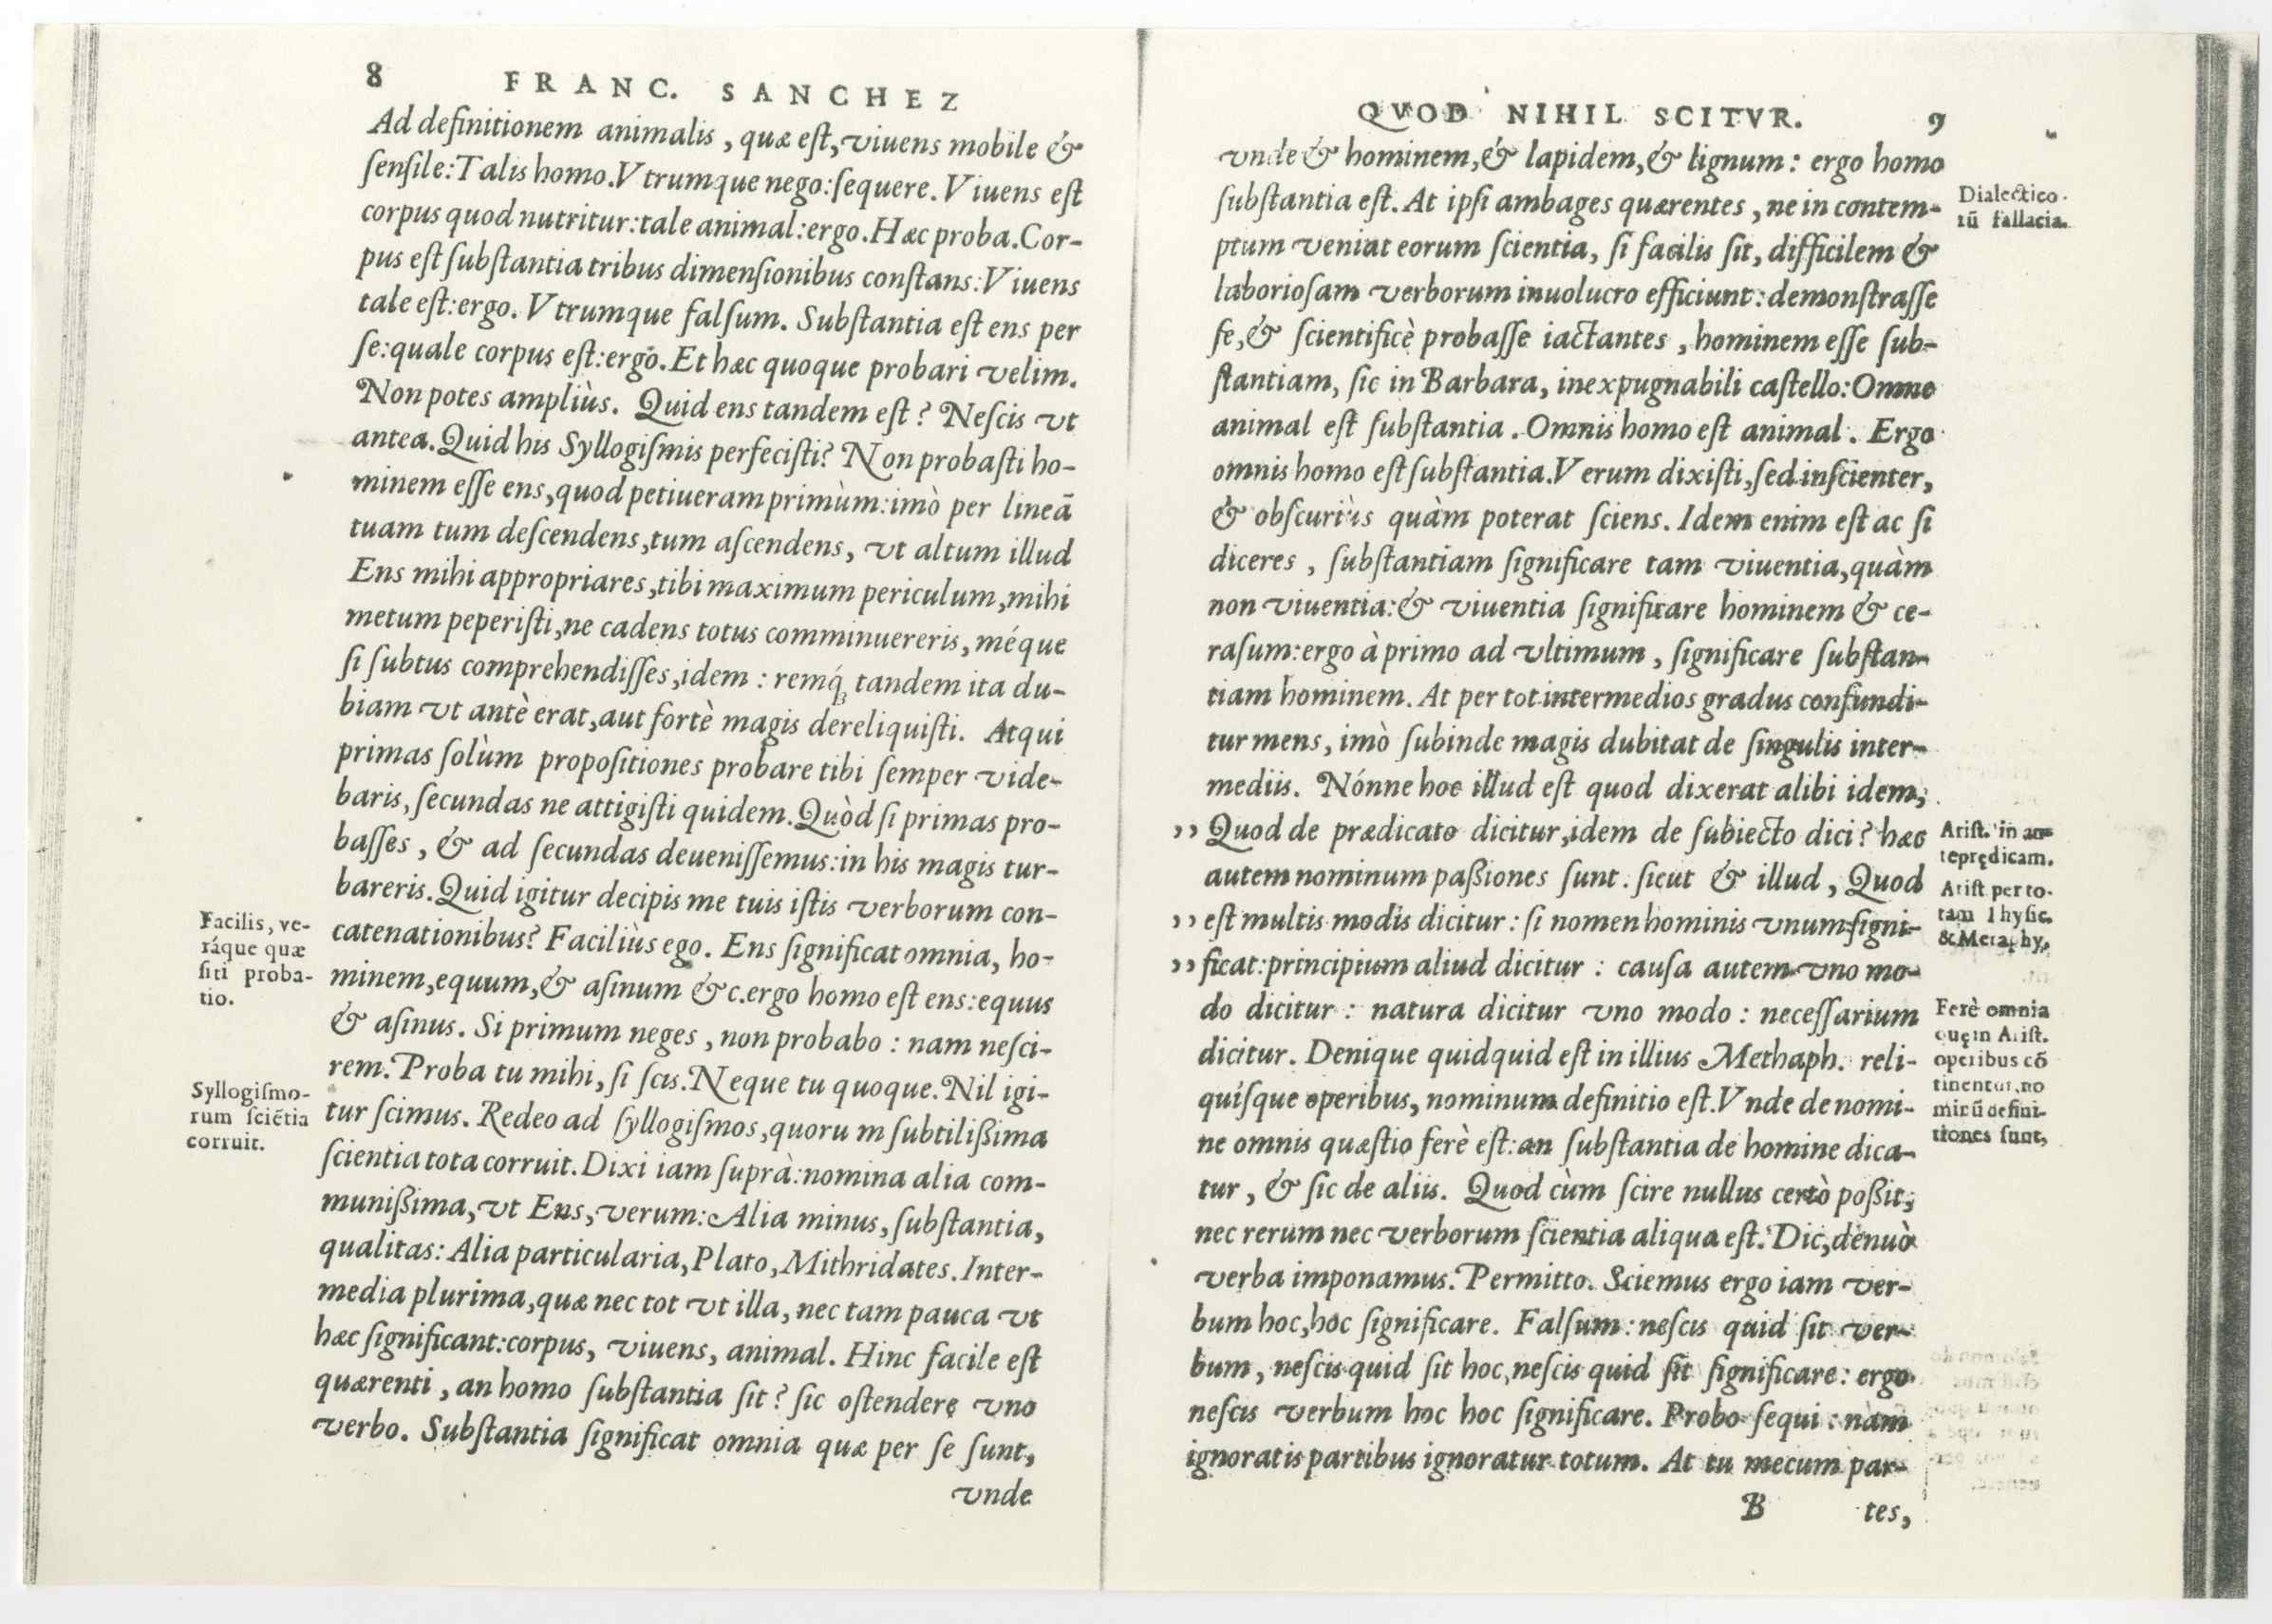 8 FRANC. SANCHEZ
Ad definitionem animalis, quæ eſt, viuens mobile &
ſenſile: Talis homo. Vtrumque nego: ſequere. Viuens eſt
corpus quod nutritur: tale animal: ergo. Hæc proba. Cor-
pus eſt ſubſtantia tribus dimenſionibus conſtans: Viuens
tale eſt: ergo. Vtrumque falſum. Subſtantia eſt ens per
ſe: quale corpus eſt: ergo. Et hæc quoque probari velim.
Non potes ampliùs. Quid ens tandem eſt? Neſcis vt
antea. Quid his Syllogiſmis perfeciſti? Non probaſti ho-
minem eſſe ens, quod petiueram primùm: imò per lineā
tuam tum deſcendens, tum aſcendens, vt altum illud
Ens mihi appropriares, tibi maximum periculum, mihi
metum peperiſti, ne cadens totus comminuereris, méque
ſi ſubtus comprehendiſſes, idem: remq́ꝫ tandem ita du-
biam vt antè erat, aut fortè magis dereliquiſti. Atqui
primas ſolùm propoſitiones probare tibi ſemper vide-
baris, ſecundas ne attigiſti quidem. Quòd ſi primas pro-
baſſes, & ad ſecundas deueniſſemus: in his magis tur-
bareris. Quid igitur decipis me tuis iſtis verborum con-
catenationibus? Faciliùs ego. Ens ſignificat omnia, ho-
minem, equum, & aſinum &c. ergo homo eſt ens: equus
& aſinus. Si primum neges, non probabo: nam neſci-
rem. Proba tu mihi, ſi ſcis. Neque tu quoque. Nil igi-
tur ſcimus. Redeo ad ſyllogiſmos, quorum ſubtilißima
ſcientia tota corruit. Dixi iam ſuprà: nomina alia com-
munißima, vt Ens, verum: Alia minus, ſubſtantia,
qualitas: Alia particularia, Plato, Mithridates. Inter-
media plurima, quæ nec tot vt illa, nec tam pauca vt
hæc ſignificant: corpus, viuens, animal. Hinc facile eſt
quærenti, an homo ſubſtantia ſit? ſic oſtendere vno
verbo. Subſtantia ſignificat omnia quæ per ſe ſunt,
vnde
Facilis, ve-
ráque quæ
ſiti proba-
tio.
Syllogiſmo-
rum ſciētia
corruit.
QVOD NIHIL SCITVR. 9
vnde & hominem, & lapidem, & lignum: ergo homo
ſubſtantia eſt. At ipſi ambages quærentes, ne in contem-
ptum veniat eorum ſcientia, ſi facilis ſit, difficilem &
laborioſam verborum inuolucro efficiunt: demonſtraſſe
ſe, & ſcientificè probaſſe iactantes, hominem eſſe ſub-
ſtantiam, ſic in Barbara, inexpugnabili caſtello: Omne
animal eſt ſubſtantia. Omnis homo eſt animal. Ergo
omnis homo eſt ſubſtantia. Verum dixiſti, ſed inſcienter,
& obſcuriùs quàm poterat ſciens. Idem enim eſt ac ſi
diceres, ſubſtantiam ſignificare tam viuentia, quàm
non viuentia: & viuentia ſignificare hominem & ce-
raſum: ergo à primo ad vltimum, ſignificare ſubſtan-
tiam hominem. At per tot intermedios gradus confundi-
tur mens, imò ſubinde magis dubitat de ſingulis inter-
mediis. Nónne hoc illud eſt quod dixerat alibi idem,
,, Quod de prædicato dicitur, idem de ſubiecto dici? hæc
autem nominum paßiones ſunt. ſicut & illud, Quod
,, eſt multis modis dicitur: ſi nomen hominis vnum ſigni-
,, ficat: principium aliud dicitur: cauſa autem vno mo-
do dicitur: natura dicitur vno modo: neceſſarium
dicitur. Denique quidquid eſt in illius Methaph. reli-
quíſque operibus, nominum definitio eſt. Vnde de nomi-
ne omnis quæſtio ferè eſt: an ſubſtantia de homine dica-
tur, & ſic de aliis. Quod cùm ſcire nullus certò poßit,
nec rerum nec verborum ſcientia aliqua eſt. Dic, denuò
verba imponamus. Permitto. Sciemus ergo iam ver-
bum hoc, hoc ſignificare. Falſum: neſcis quid ſit ver-
bum, neſcis quid ſit hoc, neſcis quid ſit ſignificare: ergo
neſcis verbum hoc hoc ſignificare. Probo ſequi: nam
ignoratis partibus ignoratur totum. At tu mecum par-
B tes,
Dialectico-
tū fallacia.
Ariſt. in an-
teprędicam.
Ariſt per to-
tam Phyſic.
& Metaphy.
Ferè omnia
quę in Ariſt.
operibus cō
tinentur, no
minū defini-
tiones ſunt,